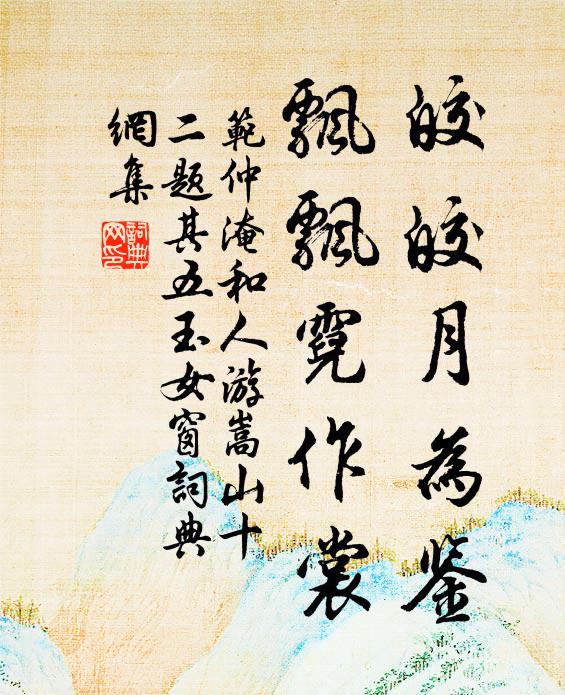 皎皎月為鉴
飄飄霓作裳
範仲淹和人游嵩山十
二题其五玉女窗詞典
網集
詞典
网印